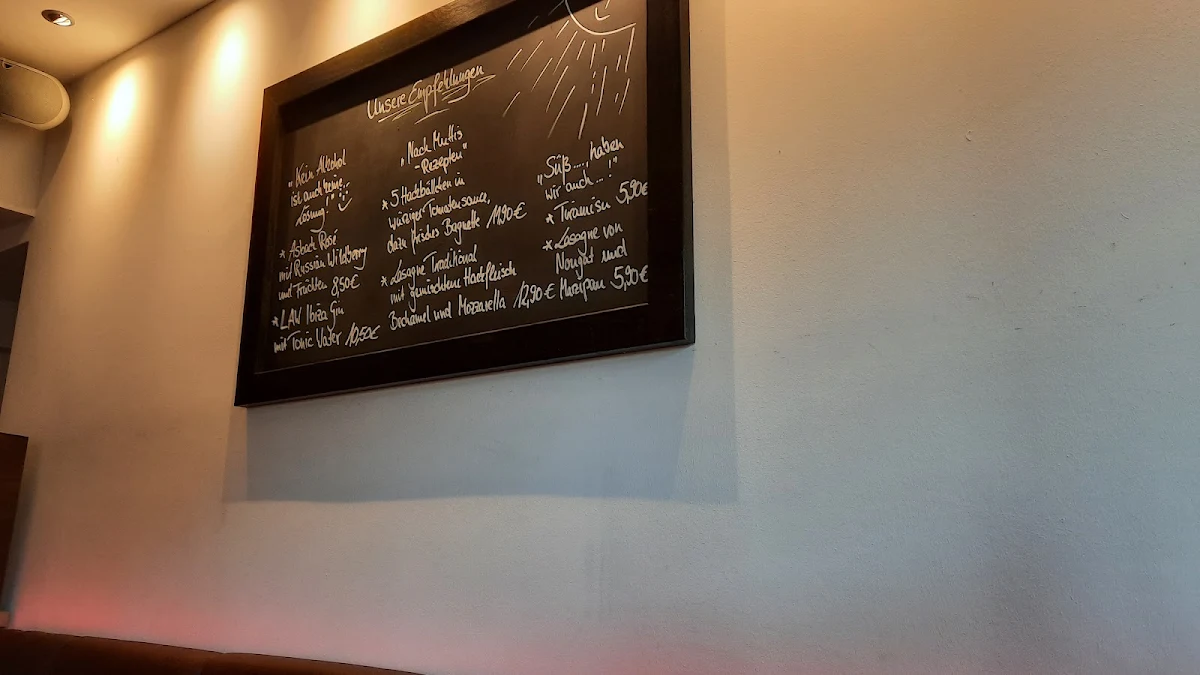 Unsere Empfehlungen
"Kein Alkohol
ist auch keine
Lösung!"
* Asbach Rosé
mit Russian Wildberry
und Früchten 8,50€
* LAW Ibiza Gin
mit Tonic Water 10,50€
"Nach Muttis
-Rezepten"
* 5 Hackbällchen in
würziger Tomatensauce,
dazu frisches Baguette 11,90€
* Lasagne Traditional
mit gemischtem Hackfleisch
Bechamel und Mozzarella 12,90€
"Süß...., haben
wir auch...!"
* Tiramisu 5,90€
* Lasagne von
Nougat und
Marzipan 5,90€